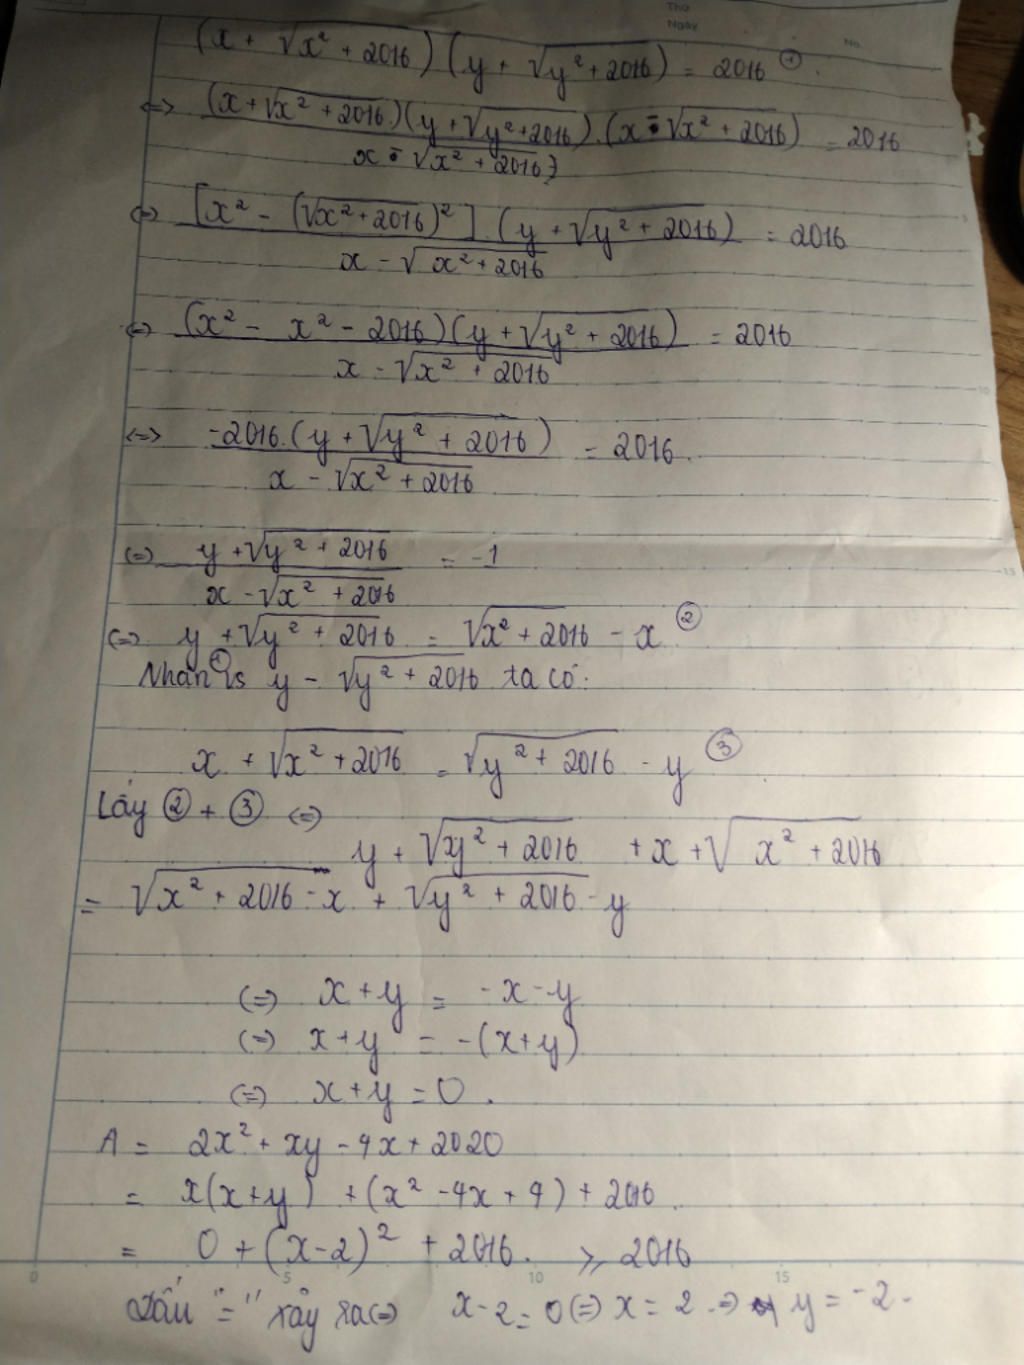 Thứ
Ngày
No.
(x + √(x² + 2016))(y + √(y² + 2016)) = 2016 ①.
<=> (x + √(x² + 2016))(y + √(y² + 2016)).(x - √(x² + 2016)) / (x - √(x² + 2016)) = 2016
<=> [x² - (√(x² + 2016))²].(y + √(y² + 2016)) / (x - √(x² + 2016)) = 2016
<=> (x² - x² - 2016)(y + √(y² + 2016)) / (x - √(x² + 2016)) = 2016
<=> -2016.(y + √(y² + 2016)) / (x - √(x² + 2016)) = 2016.
<=> (y + √(y² + 2016)) / (x - √(x² + 2016)) = -1
<=> y + √(y² + 2016) = √(x² + 2016) - x ②
Nhân ① vs y - √(y² + 2016) ta có:
x + √(x² + 2016) = √(y² + 2016) - y ③
Lấy ② + ③ <=>
y + √(y² + 2016) + x + √(x² + 2016)
= √(x² + 2016) - x + √(y² + 2016) - y
<=> x + y = -x - y
<=> x + y = -(x + y)
<=> x + y = 0.
A = 2x² + xy - 4x + 2020
= x(x + y) + (x² - 4x + 4) + 2016.
= 0 + (x - 2)² + 2016. ⩾ 2016
0 5 10 15
Dấu "=" xảy ra <=> x - 2 = 0 <=> x = 2 => y = -2.